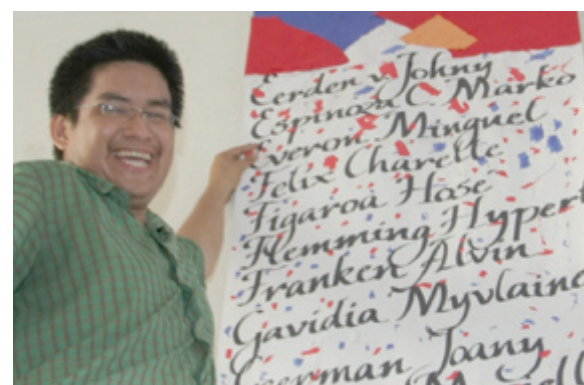 Eerden v. Johny
Espinoza C. Marko
Everon Minguel
Felix Charelle
Figaroa Hose
Flemming Hypert
Franken Alvin
Gavidia Myvlaine
Joany